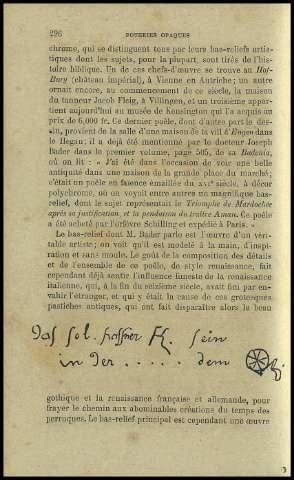 226 POTERIES OPAQUES
chrome, qui se distinguent tous par leurs bas-reliefs artis-
tiques dont les sujets, pour la plupart, sont tirés de l'his-
toire biblique. Un de ces chefs-d'œuvre se trouve au Hof-
Burg (château impérial), à Vienne en Autriche; un autre
ornait encore, au commencement de ce siècle, la maison
du tanneur Jacob Fleig, à Villingen, et un troisième appar-
tient aujourd'hui au musée de Kensington qui l'a acquis au
prix de 6,000 fr. Ce dernier poêle, dont d'autre part le des-
sin, provient de la salle d'une maison de la ville d'Engen dans
le Hegau; il a déjà été mentionné par le docteur Joseph
Bader dans le premier volume, page 505, de sa Badenia,
où on lit : « J'ai été dans l'occasion de voir une belle
antiquité dans une maison de la grande place du marché;
c'était un poêle en faïence émaillée du XVIe siècle, à décor
polychrome, où on voyait entre autres un magnifique bas-
relief, dont le sujet représentait le Triomphe de Mardochée
après sa justification, et la pendaison du traître Aman. Ce poêle
a été acheté par l'orfèvre Schilling et expédié à Paris. »
Le bas-relief dont M. Bader parle est l'œuvre d'un véri-
table artiste; on voit qu'il est modelé à la main, d'inspi-
ration et sans moule. Le goût de la composition des détails
et de l'ensemble de ce poêle, de style renaissance, fait
cependant déjà sentir l'influence innée de la renaissance
italienne, qui, à la fin du seizième siècle, avait fini par en-
vahir l'étranger, et qui y était la cause de ces grotesques
pastiches antiques, qui ont fait disparaître alors le beau
Das sol. sein
in der ..... dem
gothique et la renaissance française et allemande, pour
frayer le chemin aux abominables créations du temps des
perruques. Le bas-relief principal est cependant une œuvre